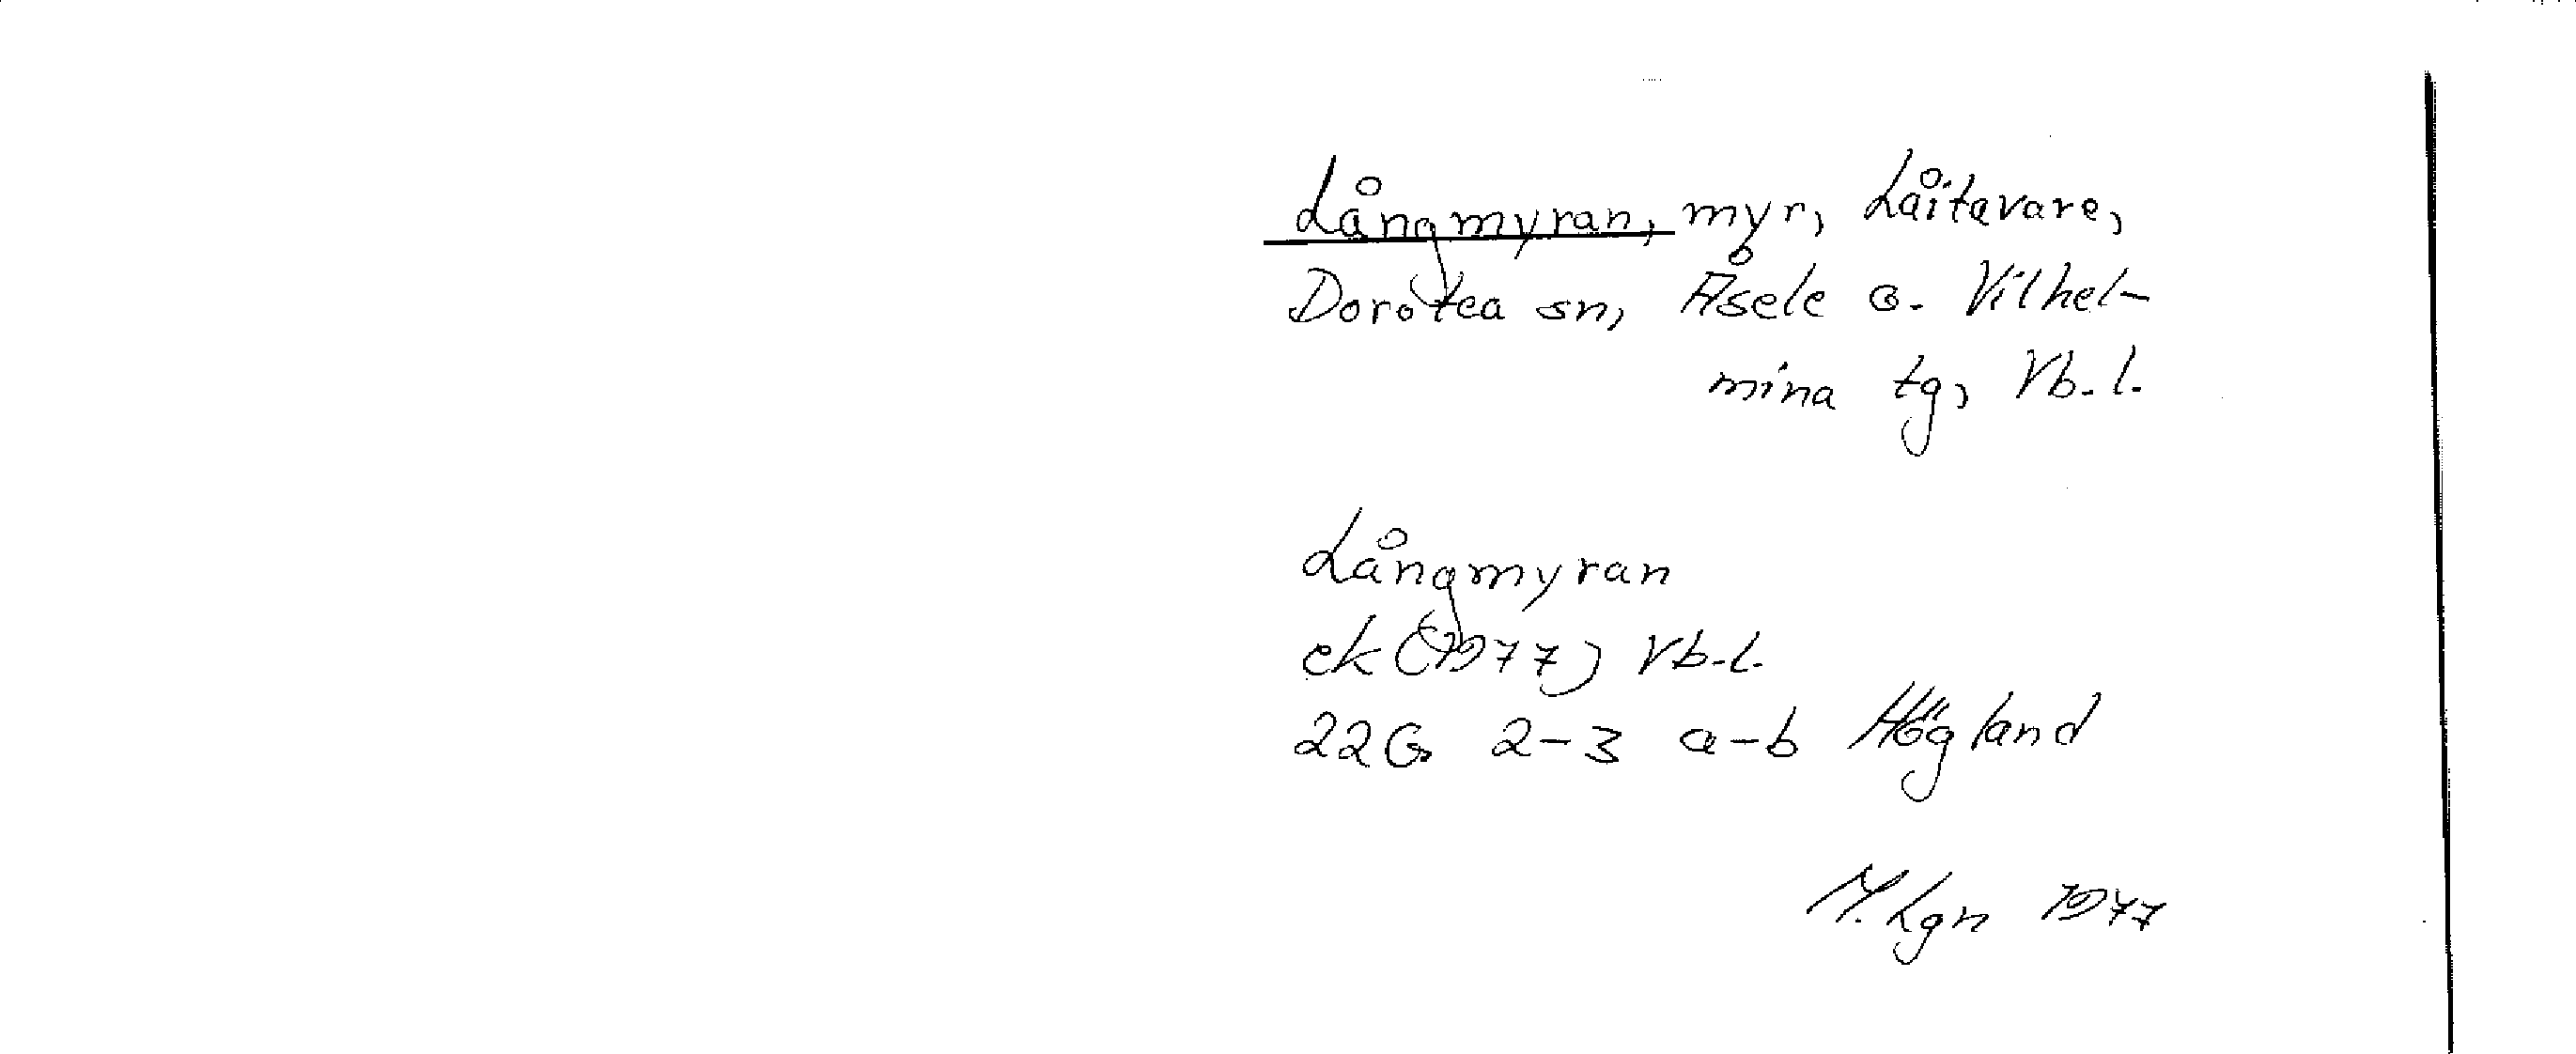 Långmyran, myr, Låitavare,
Dorotea sn, Åsele o. Vilhel-
mina tg, Vb.l.
Långmyran
ek (1977) Vb.l.
22G 2-3 a-b Högland
M. Lgn 1977